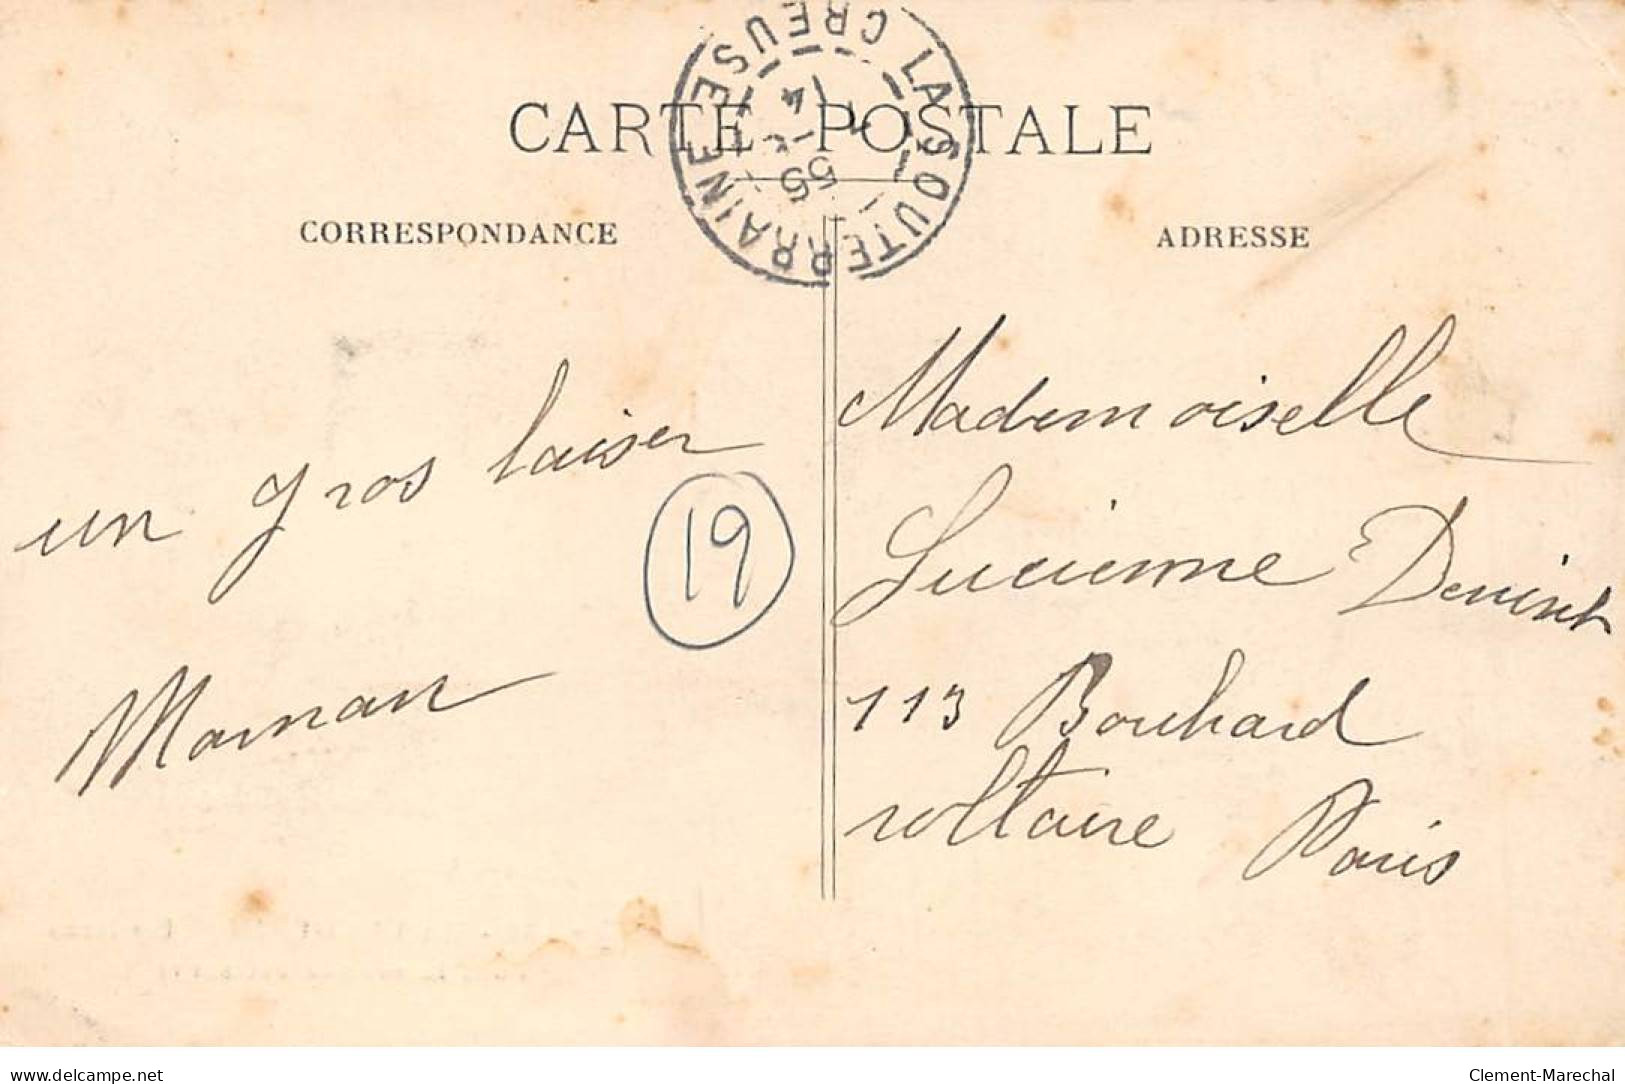 CARTE POSTALE
LA SOUTERRAINE CREUSE
CORRESPONDANCE
ADRESSE
un gros baiser
Maman
19
Mademoiselle
Lucienne
113 Boulvard
voltaire Paris
www.delcampe.net
Clement-Marechal